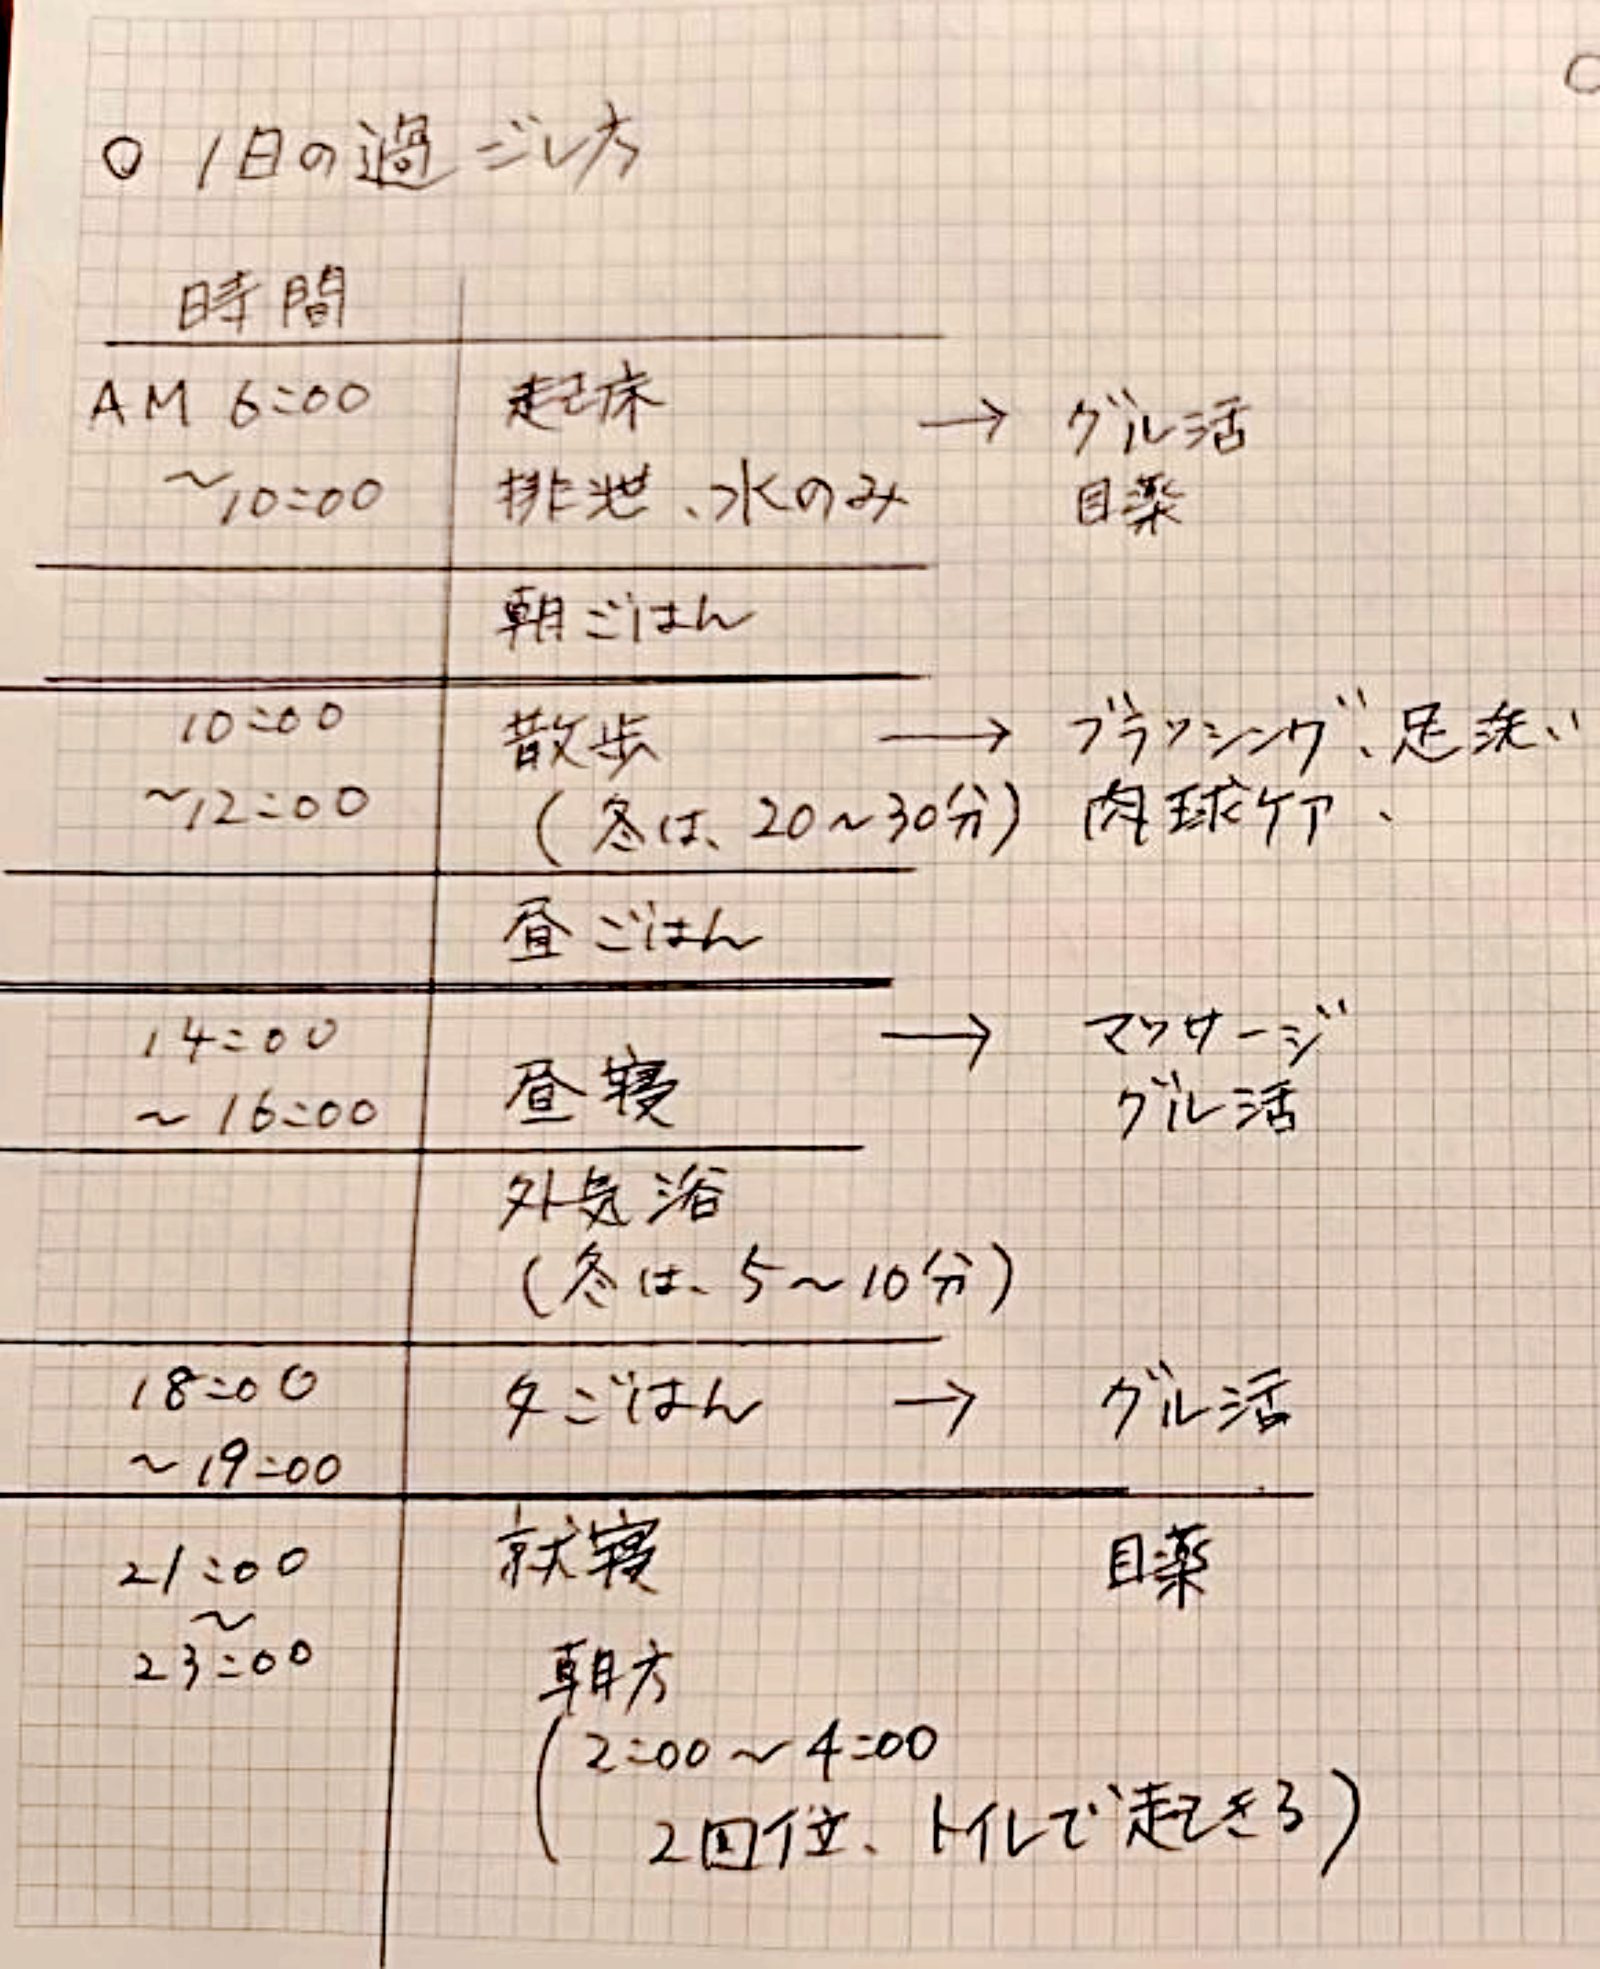 ○ 1日の過ごし方
時間
AM 6:00 起床 → グル活
～10:00 排泄、水のみ 目薬
朝ごはん
10:00 散歩 → ブラッシング、足洗い
～12:00 (冬は、20～30分) 肉球ケア、
昼ごはん
14:00 → マッサージ
～16:00 昼寝 グル活
外気浴
(冬は、5～10分)
18:00 夕ごはん → グル活
～19:00
21:00 就寝 目薬
～
23:00 朝方
(2:00～4:00
2回位、トイレで起きる)